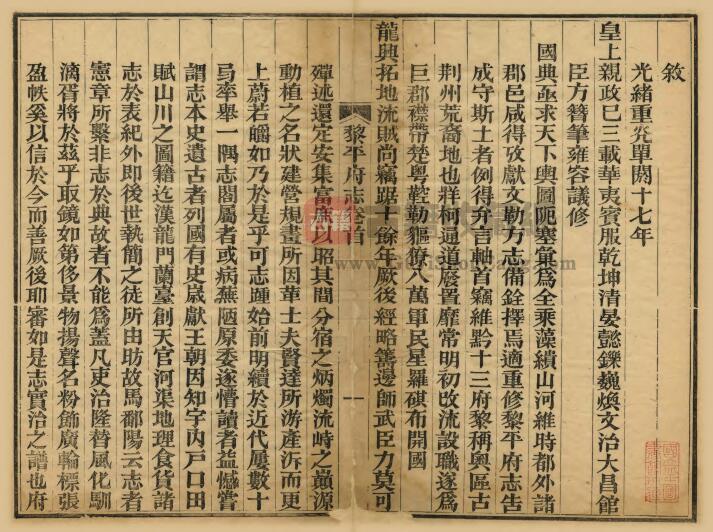 敘
光緒重光單閼十七年
皇上親政已三載華夷賓服乾坤清晏懿鑠巍煥文治大昌館
臣方簪筆雍容議修
國典亟求天下輿圖阨塞彙為全乘藻繢山河維時都外諸
郡邑咸得攷獻文勒方志備銓擇焉適重修黎平府志告
成守斯土者例得弁言軸首竊維黔十三府黎稱奧區古
荆州荒裔地也牂柯通道廢置靡常明初改流設職遂為
巨郡襟帶楚粤鞚勒貙獠八萬軍民星羅碁布開國
龍興拓地流賊尚竊踞十餘年厥後經略籌邊師武臣力莫可
黎平府志卷首
一
殫述還定安集富庶以昭其間分宿之炳燭流峙之巔源
動植之名狀建營規畫所因華士夫賢達所游產泝而更
上蔚若皭如乃於是乎可志踵始前明續於近代屢數十
年率舉一隅志閣屬者或病蕪陋原委遂懵讀者益憾嘗
謂志本史遺古者列國有史嵗獻王朝因知宇內戶口田
賦山川之圖籍迄漢龍門蘭臺創天官河渠地理食貨諸
志於表紀外即後世執簡之徒所由昉故馬鄱陽云志者
憲章所繫非志於典故者不能為蓋凡吏治隆替風化馴
漓胥將於茲乎取鏡如第侈景物揚聲名粉飾廣輪標張
盈帙奚以信於今而善厥後耶審如是志實治之譜也府